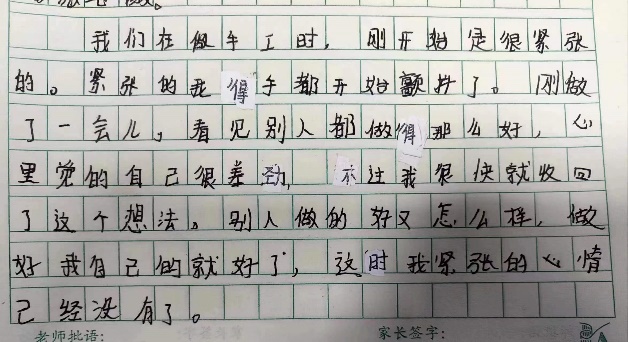 我们在做手工时，刚开始是很紧张
的。紧张的我得手都开始颤抖了。刚做
了一会儿，看见别人都做得那么好，心
里觉的自己很差劲，不过我很快就收回
了这个想法。别人做的好又怎么样，做
好我自己的就好了，这时我紧张的心情
己经没有了。
老师批语：
家长签字：